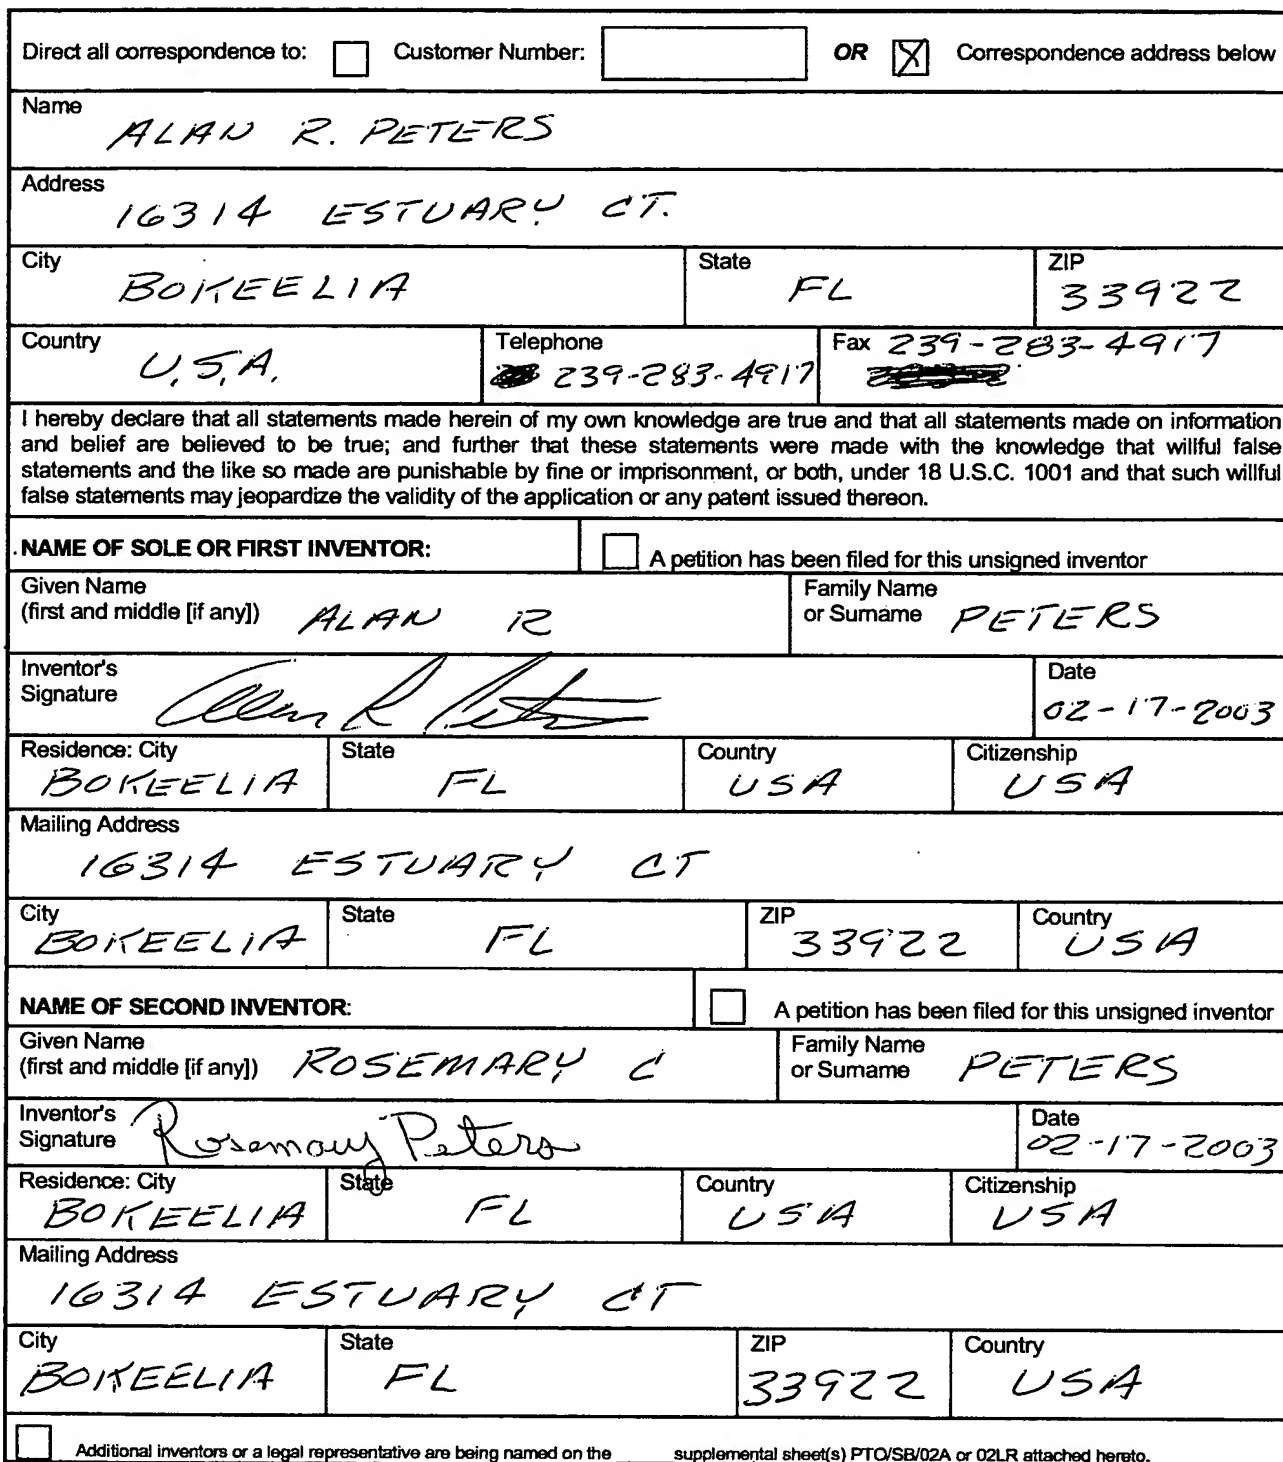 Direct all correspondence to: Customer Number: OR X Correspondence address below
Name
ALAN R. PETERS
Address
16314 ESTUARY CT.
City State ZIP
BOKEELIA FL 33922
Country Telephone Fax 239-283-4917
U.S.A. 239-283-4917
I hereby declare that all statements made herein of my own knowledge are true and that all statements made on information
and belief are believed to be true; and further that these statements were made with the knowledge that willful false
statements and the like so made are punishable by fine or imprisonment, or both, under 18 U.S.C. 1001 and that such willful
false statements may jeopardize the validity of the application or any patent issued thereon.
NAME OF SOLE OR FIRST INVENTOR: A petition has been filed for this unsigned inventor
Given Name Family Name
(first and middle [if any]) ALAN R or Surname PETERS
Inventor's Date
Signature Alan R Peters 02-17-2003
Residence: City State Country Citizenship
BOKEELIA FL USA USA
Mailing Address
16314 ESTUARY CT
City State ZIP Country
BOKEELIA FL 33922 USA
NAME OF SECOND INVENTOR: A petition has been filed for this unsigned inventor
Given Name Family Name
(first and middle [if any]) ROSEMARY C or Surname PETERS
Inventor's Date
Signature Rosemary Peters 02-17-2003
Residence: City State Country Citizenship
BOKEELIA FL USA USA
Mailing Address
16314 ESTUARY CT
City State ZIP Country
BOKEELIA FL 33922 USA
Additional inventors or a legal representative are being named on the ____ supplemental sheet(s) PTO/SB/02A or 02LR attached hereto.